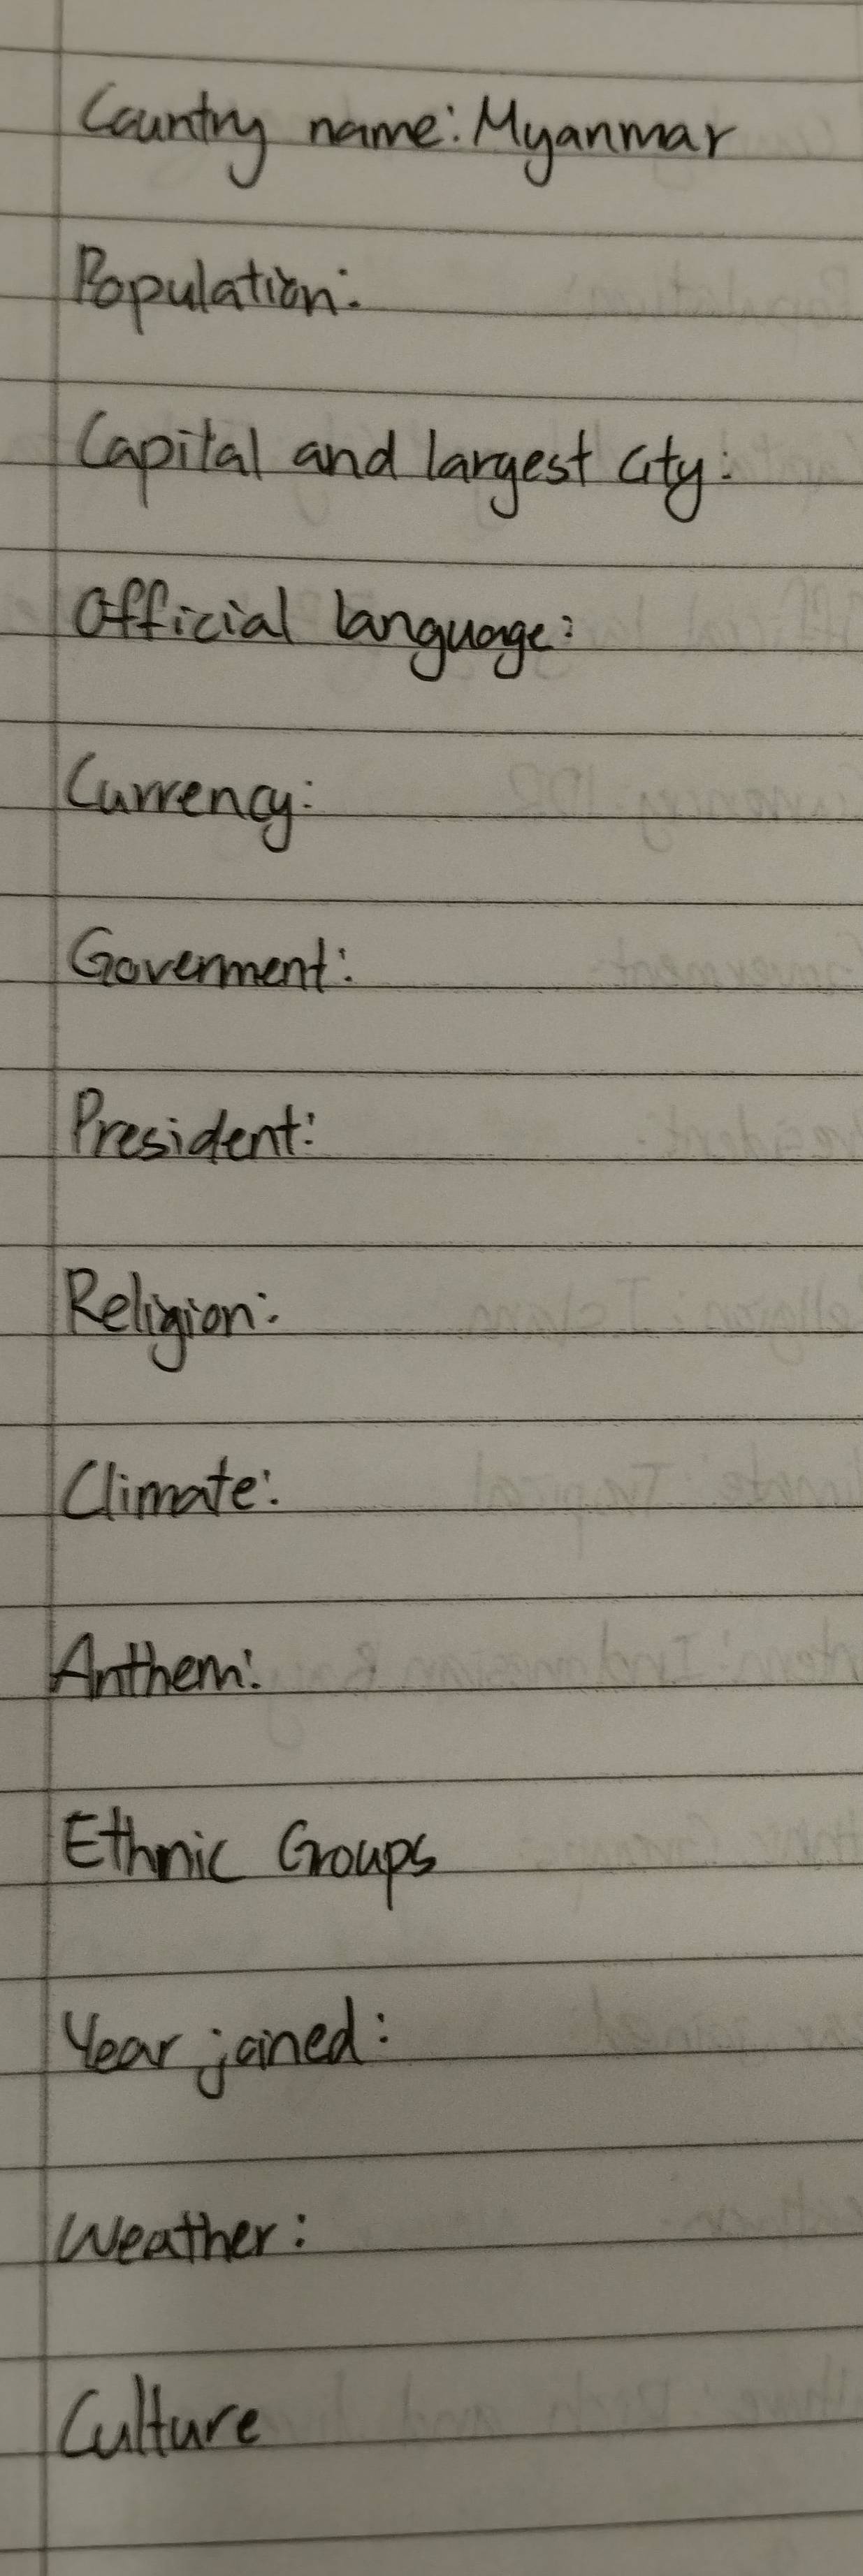 Country name: Myanmar
Population:
Capital and largest city:
Official language:
Currency:
Goverment:
President:
Religion:
Climate:
Anthem:
Ethnic Groups
Year joined:
Weather:
Culture